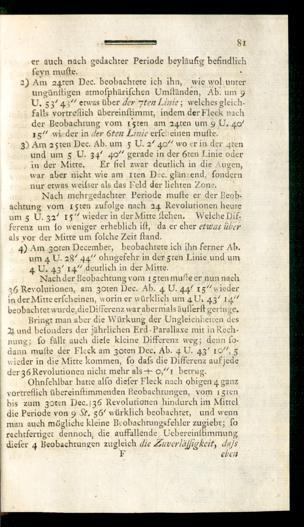 81
er auch nach gedachter Periode beyläufig befindlich
seyn muſte.
2) Am 24ten Dec. beobachtete ich ihn, wie wol unter
ungünſtigen atmoſphäriſchen Umſtänden, Ab. um 9
U. 53′ 43″ etwas über der 7ten Linie; welches gleich-
falls vortreflich übereinſtimmt, indem der Fleck nach
der Beobachtung vom 15ten am 24ten um 9 U. 40′
15″ wieder in der 6ten Linie erſcheinen muſte.
3) Am 25ten Dec. Ab. um 5 U. 2′ 40″ wo er in der 4ten
und um 5 U. 34′ 40″ gerade in der 6ten Linie oder
in der Mitte. Er fiel zwar deutlich in die Augen,
war aber nicht wie am 1ten Dec. glänzend, ſondern
nur etwas weiſser als das Feld der lichten Zone.
Nach mehrgedachter Periode muſte er der Beob-
achtung vom 15ten zufolge nach 24 Revolutionen heute
um 5 U. 32′ 15″ wieder in der Mitte ſtehen. Welche Dif-
ferenz um ſo weniger erheblich iſt, da er eher etwas über
als vor der Mitte um ſolche Zeit ſtand.
4) Am 30ten December, beobachtete ich ihn ferner Ab.
um 4 U. 28′ 44″ ohngefehr in der 5ten Linie und um
4 U. 43′ 14″ deutlich in der Mitte.
Nach der Beobachtung vom 15ten muſte er nun nach
36 Revolutionen, am 30ten Dec. Ab. 4 U. 44′ 15″ wieder
in der Mitte erſcheinen, worin er würklich um 4 U. 43′ 14″
beobachtet wurde, die Differenz war abermals äuſſerſt geringe.
Bringt man aber die Würkung der Ungleichheiten des
♃ und beſonders der jährlichen Erd-Parallaxe mit in Rech-
nung; ſo fällt auch dieſe kleine Differenz weg; denn ſo-
dann muſte der Fleck am 30ten Dec. Ab. 4 U. 43′ 10″, 5
wieder in die Mitte kommen, ſo daſs die Differenz auf jede
der 36 Revolutionen nicht mehr als + 0,″1 betrug.
Ohnfehlbar hatte alſo dieſer Fleck nach obigen 4 ganz
vortreflich übereinſtimmenden Beobachtungen, vom 15ten
bis zum 30ten Dec. 36 Revolutionen hindurch im Mittel
die Periode von 9 St. 56′ würklich beobachtet, und wenn
man auch mögliche kleine Beobachtungsfehler zugiebt; ſo
rechtfertiget dennoch, die auffallende Uebereinſtimmung
dieſer 4 Beobachtungen zugleich die Zuverläſſigkeit, daſs
F eben